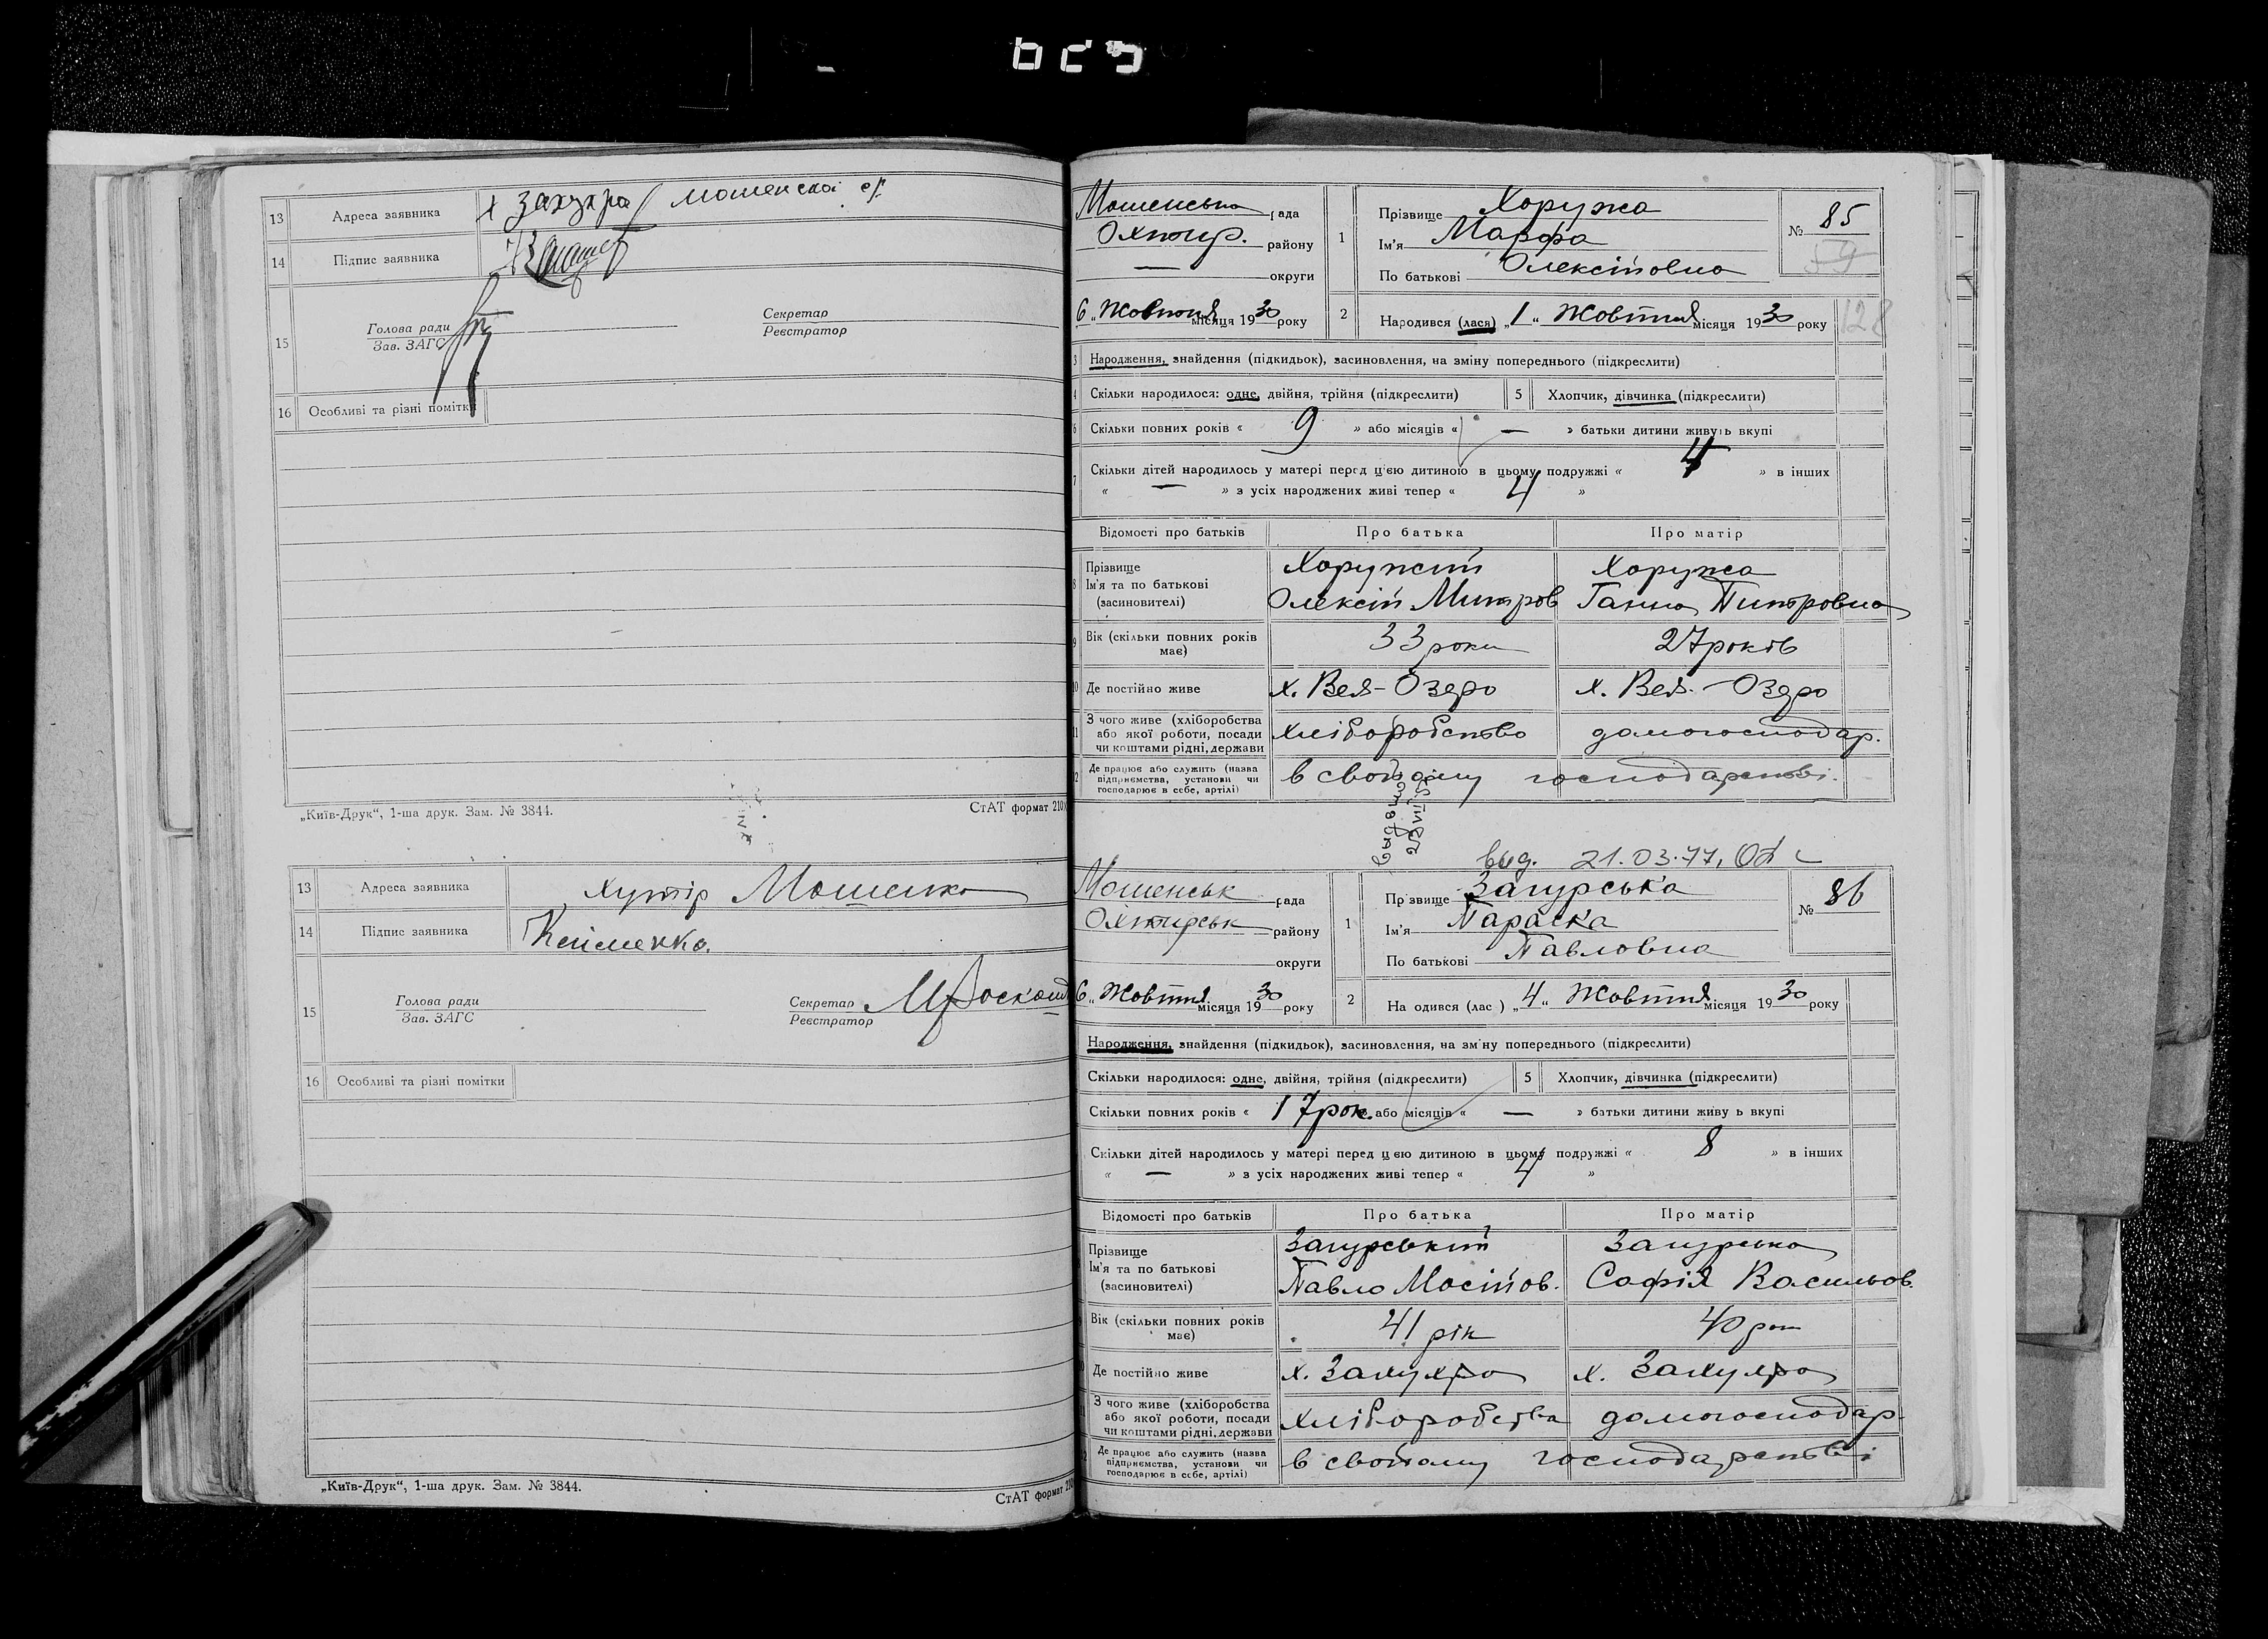 13 Адреса заявника х Захухра Мошенскої с/р
14 Підпис заявника
15 Голова ради
Зав. ЗАГС
Секретар
Реєстратор
16 Особливі та різні помітки
„Київ-Друк“, 1-ша друк. Зам. № 3844.
СтАТ формат 210
13 Адреса заявника хутір Мошенка
14 Підпис заявника Клименко.
15 Голова ради
Зав. ЗАГС
Секретар
Реєстратор
16 Особливі та різні помітки
„Київ-Друк“, 1-ша друк. Зам. № 3844.
СтАТ формат 210
Мошенська рада
Охтир. району
— округи
6 „ Жовтня місяця 1930 року
1 Прізвище Хоружа
Ім'я Марфа
По батькові Олексійовна
№ 85
59
128
2 Народився (лася) „1“ Жовтня місяця 1930 року
3 Народження, знайдення (підкидьок), засиновлення, на зміну попереднього (підкреслити)
4 Скільки народилося: одне, двійня, трійня (підкреслити) 5 Хлопчик, дівчинка (підкреслити)
6 Скільки повних років « 9 » або місяців « — » батьки дитини живуть вкупі
7 Скільки дітей народилось у матері перед цією дитиною в цьому подружжі « 4 » в інших
« — » з усіх народжених живі тепер « 4 »
Відомості про батьків Про батька Про матір
8 Прізвище Хоружий Хоружа
Ім'я та по батькові
(засиновителі) Олексій Митров Ганна Питровна
9 Вік (скільки повних років має) 33 роки 27 років
10 Де постійно живе х. Вел-Озеро х. Вел.-Озеро
11 З чого живе (хліборобства
або якої роботи, посади
чи коштами рідні, держави хліборобство домогосподар.
12 Де працює або служить (назва
підприємства, установи чи
господарює в себе, артілі) в свойому господарстві.
вид. 21.03.77,
Мошенськ рада
Охтирськ району
округи
6 „ Жовтня місяця 1930 року
1 Пр звище Загурська
Ім'я Параска
По батькові Павловна
№ 86
2 На одився (лас ) „4“ Жовтня місяця 1930 року
Народження, знайдення (підкидьок), засиновлення, на зм ну попереднього (підкреслити)
Скільки народилося: одне, двійня, трійня (підкреслити) 5 Хлопчик, дівчинка (підкреслити)
Скільки повних років « 17 рок. або місяців « — » батьки дитини живу ь вкупі
Скільки дітей народилось у матері перед ц єю дитиною в цьому подружжі « 8 » в інших
« — » з усіх народжених живі тепер « 4 »
Відомості про батьків Про батька Про матір
Прізвище Загурський Загурська
Ім'я та по батькові
(засиновителі) Павло Мосійов. Софія Васильов.
Вік (скільки повних років має) 41 рік 40 рок
Де постійно живе х. Захухра х. Захухра
З чого живе (хліборобства
або якої роботи, посади
чи коштами рідні, держави хліборобства домогосподар.
Де працює або служить (назва
підприємства, установи чи
господарює в себе, артілі) в свойому господарстві